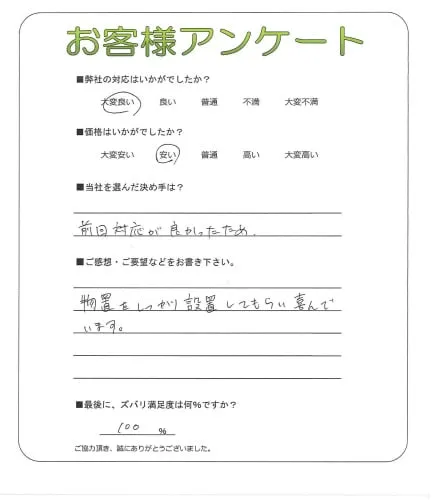 お客様アンケート
■弊社の対応はいかがでしたか？
大変良い 良い 普通 不満 大変不満
■価格はいかがでしたか？
大変安い 安い 普通 高い 大変高い
■当社を選んだ決め手は？
前回対応が良かったため.
■ご感想・ご要望などをお書き下さい。
物置をしっかり設置してもらい喜んで
います。
■最後に、ズバリ満足度は何％ですか？
100 ％
ご協力頂き、誠にありがとうございました。